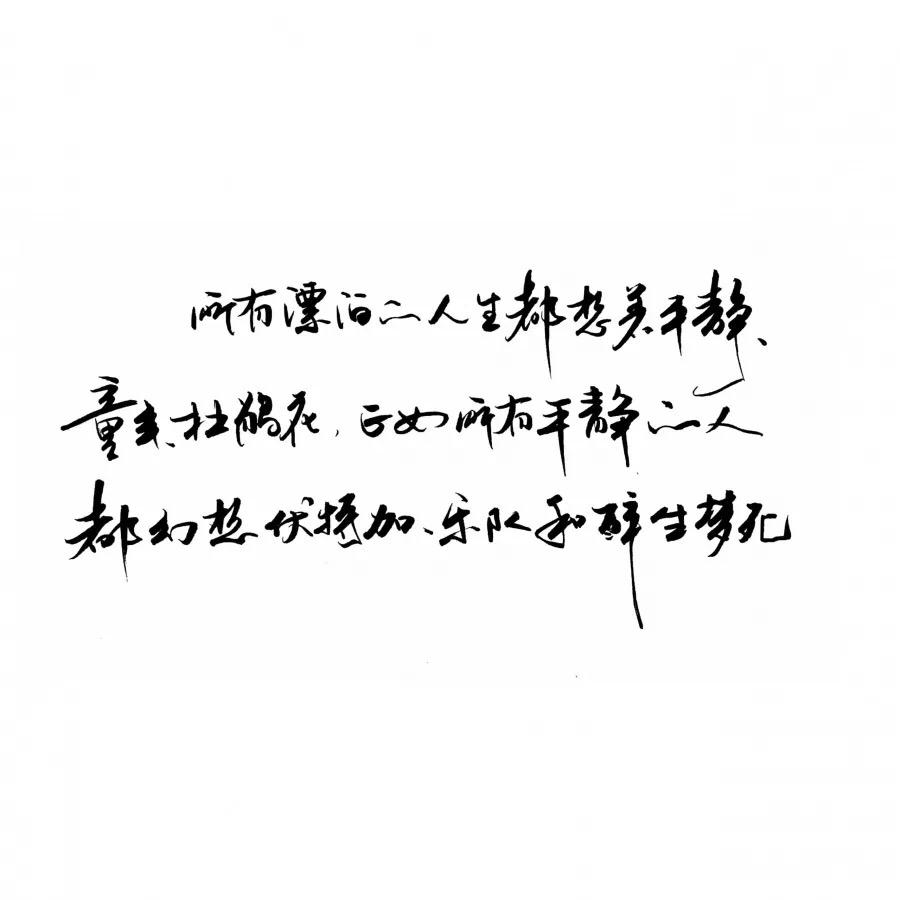 所有漂泊的人生都想着平静、
童年、杜鹃花，正如所有平静的人
都幻想伏特加、乐队和醉生梦死